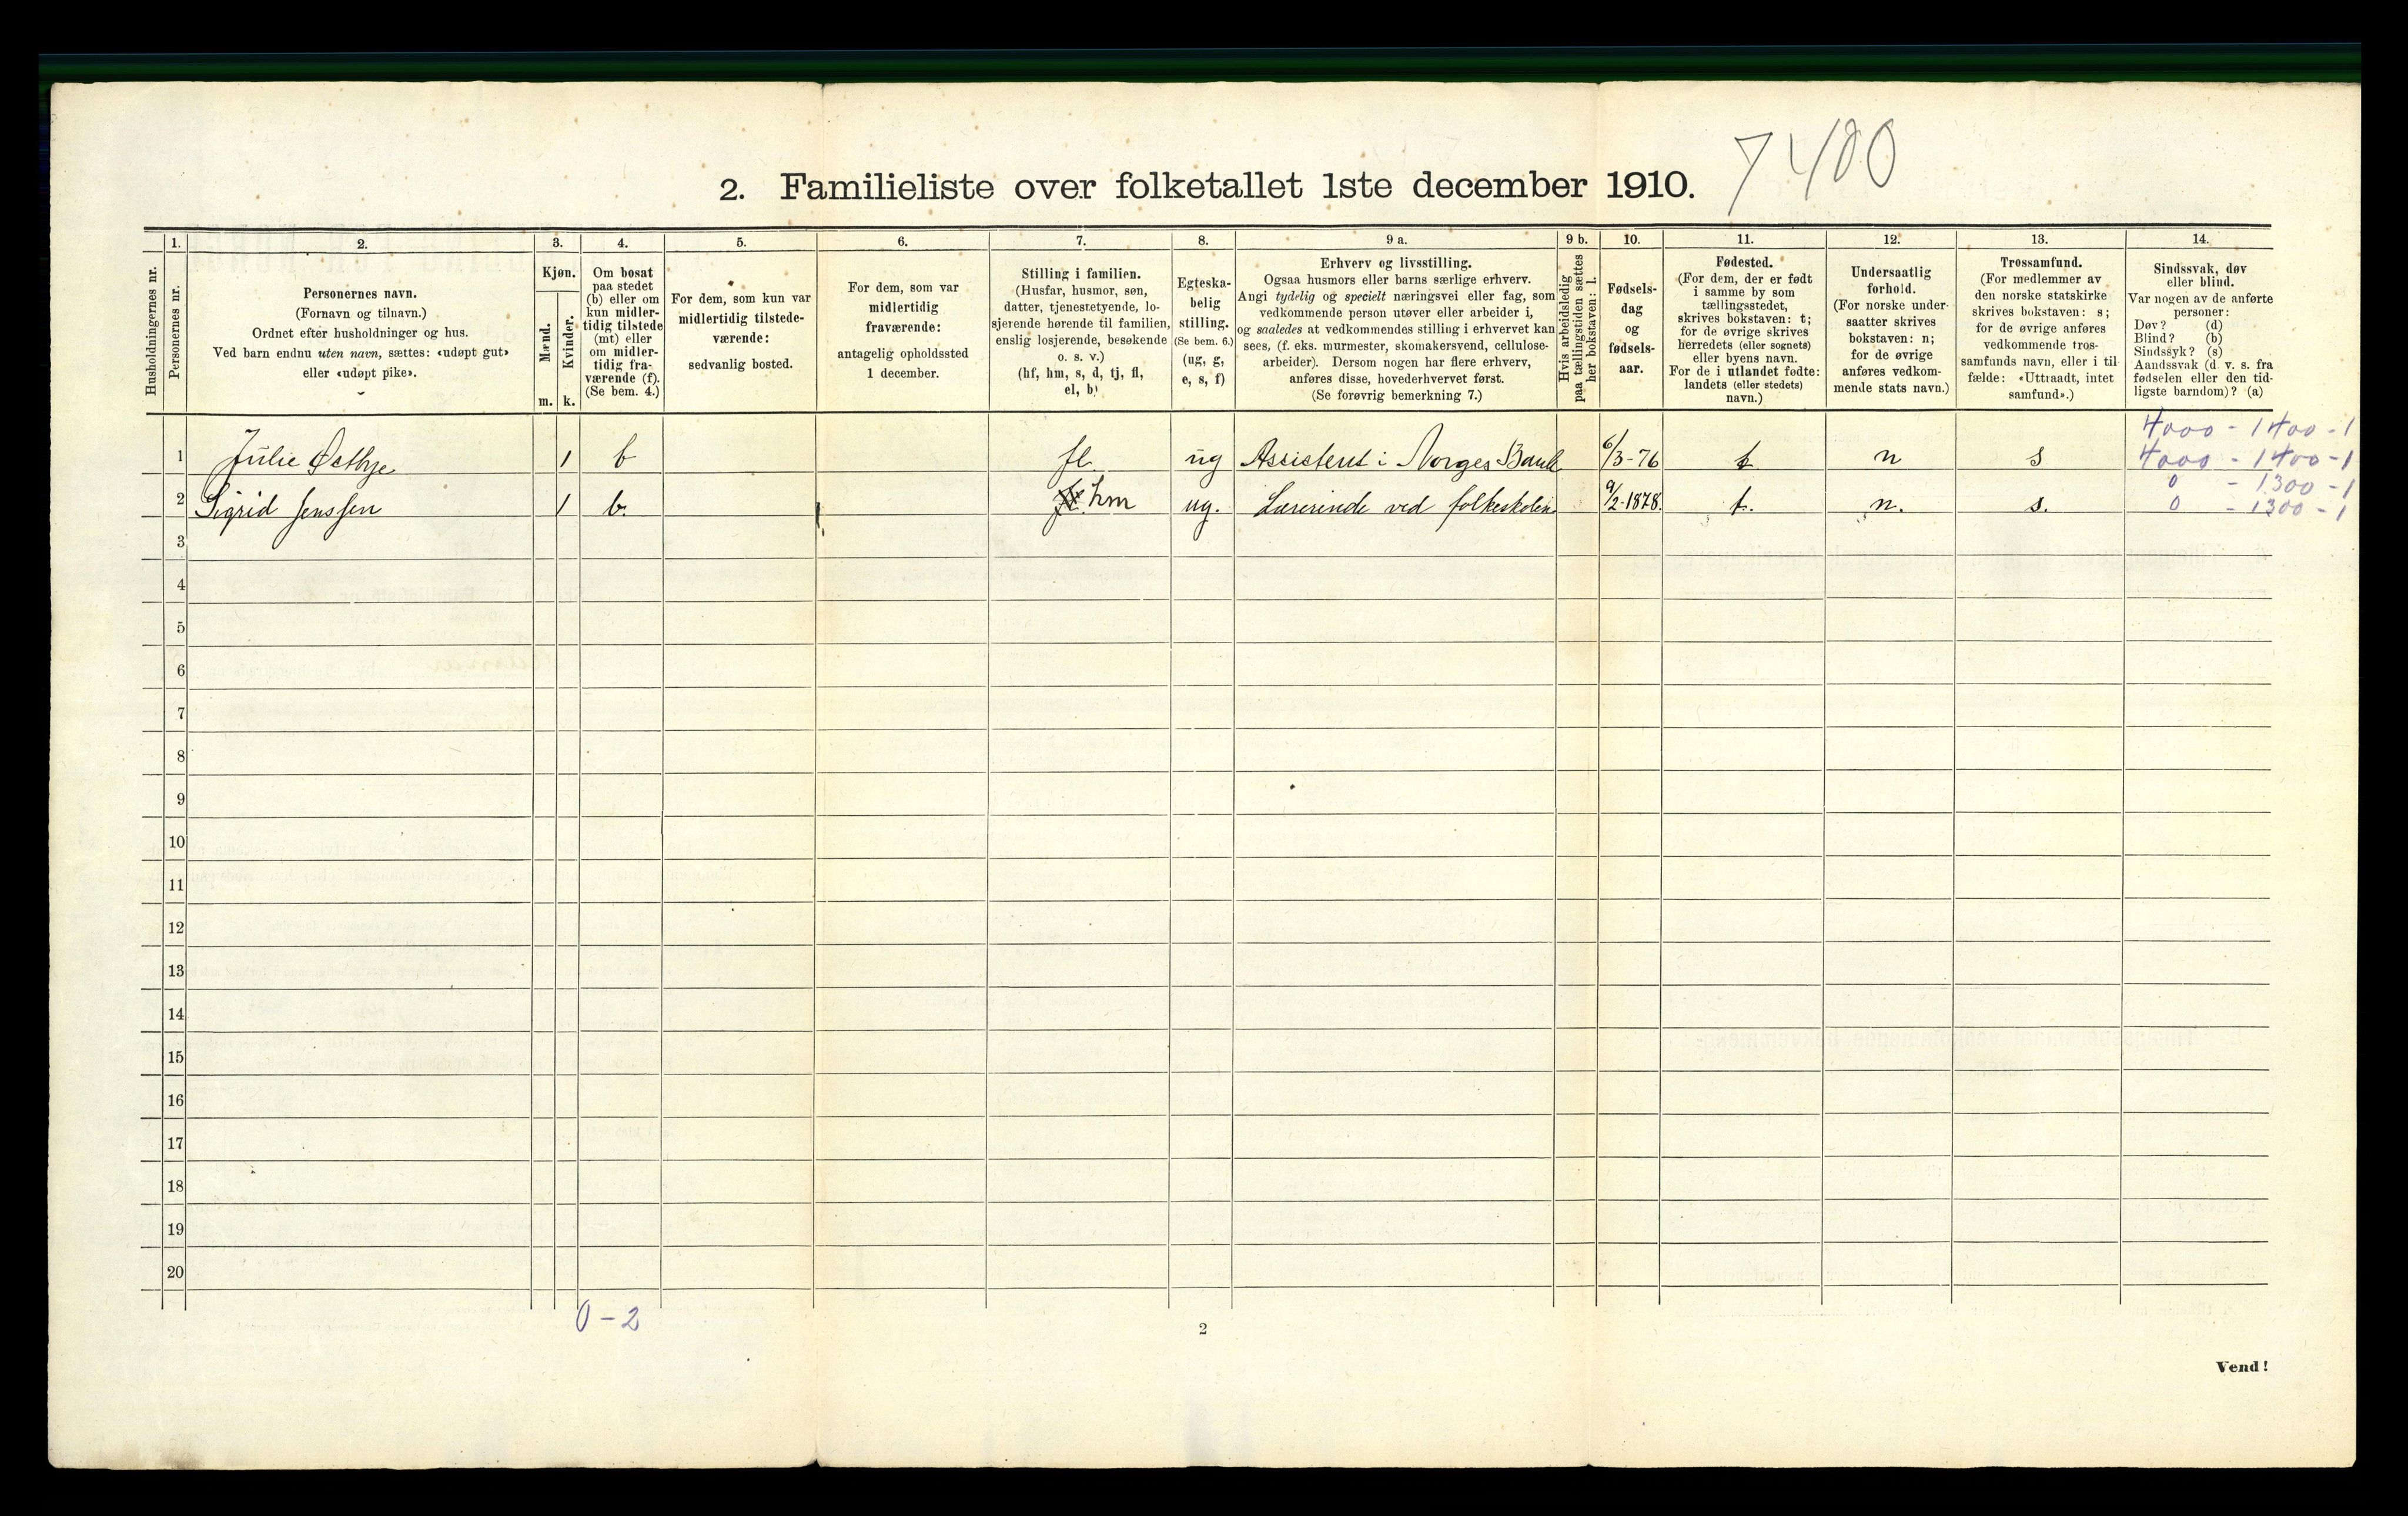 7400
2. Familieliste over folketallet 1ste december 1910.
Husholdningernes nr.
1.
Personernes nr.
2.
Personernes navn.
(Fornavn og tilnavn.)
Ordnet efter husholdninger og hus.
Ved barn endnu uten navn, sættes: «udøpt gut»
eller «udøpt pike».
3.
Kjøn.
Mænd.
Kvinder.
m. k.
4.
Om bosat
paa stedet
(b) eller om
kun midler-
tidig tilstede
(mt) eller
om midler-
tidig fra-
værende (f).
(Se bem. 4.)
5.
For dem, som kun var
midlertidig tilstede-
værende:
sedvanlig bosted.
6.
For dem, som var
midlertidig
fraværende:
antagelig opholdssted
1 december.
7.
Stilling i familien.
(Husfar, husmor, søn,
datter, tjenestetyende, lo-
sjerende hørende til familien,
enslig losjerende, besøkende
o. s. v.)
(hf, hm, s, d, tj, fl,
el, b)
8.
Egteska-
belig
stilling.
(Se bem. 6.)
(ug, g,
e, s, f)
9 a.
Erhverv og livsstilling.
Ogsaa husmors eller barns særlige erhverv.
Angi tydelig og specielt næringsvei eller fag, som
vedkommende person utøver eller arbeider i,
og saaledes at vedkommendes stilling i erhvervet kan
sees, (f. eks. murmester, skomakersvend, cellulose-
arbeider). Dersom nogen har flere erhverv,
anføres disse, hovederhvervet først.
(Se forøvrig bemerkning 7.)
9 b.
Hvis arbeidsledig
paa tællingstiden sættes
her bokstaven: l.
10.
Fødsels-
dag
og
fødsels-
aar.
11.
Fødested.
(For dem, der er født
i samme by som
tællingsstedet,
skrives bokstaven: t;
for de øvrige skrives
herredets (eller sognets)
eller byens navn.
For de i utlandet fødte:
landets (eller stedets)
navn.)
12.
Undersaatlig
forhold.
(For norske under-
saatter skrives
bokstaven: n;
for de øvrige
anføres vedkom-
mende stats navn.)
13.
Trossamfund.
(For medlemmer av
den norske statskirke
skrives bokstaven: s;
for de øvrige anføres
vedkommende tros-
samfunds navn, eller i til-
fælde: «Uttraadt, intet
samfund».)
14.
Sindssvak, døv
eller blind.
Var nogen av de anførte
personer:
Døv? (d)
Blind? (b)
Sindssyk? (s)
Aandssvak (d. v. s. fra
fødselen eller den tid-
ligste barndom)? (a)
4000 - 1400 - 1
1 Julie Østbye 1 b fl. ug Assistent i Norges Bank 6/3-76 t n s 4000 - 1400 - 1
0 - 1300 - 1
2 Sigrid Jenssen 1 b. hm ug. Lærerinde ved folkeskolen 9/2-1878. t. n. s. 0 - 1300 - 1
3
4
5
6
7
8
9
10
11
12
13
14
15
16
17
18
19
20
0 - 2
2
Vend!